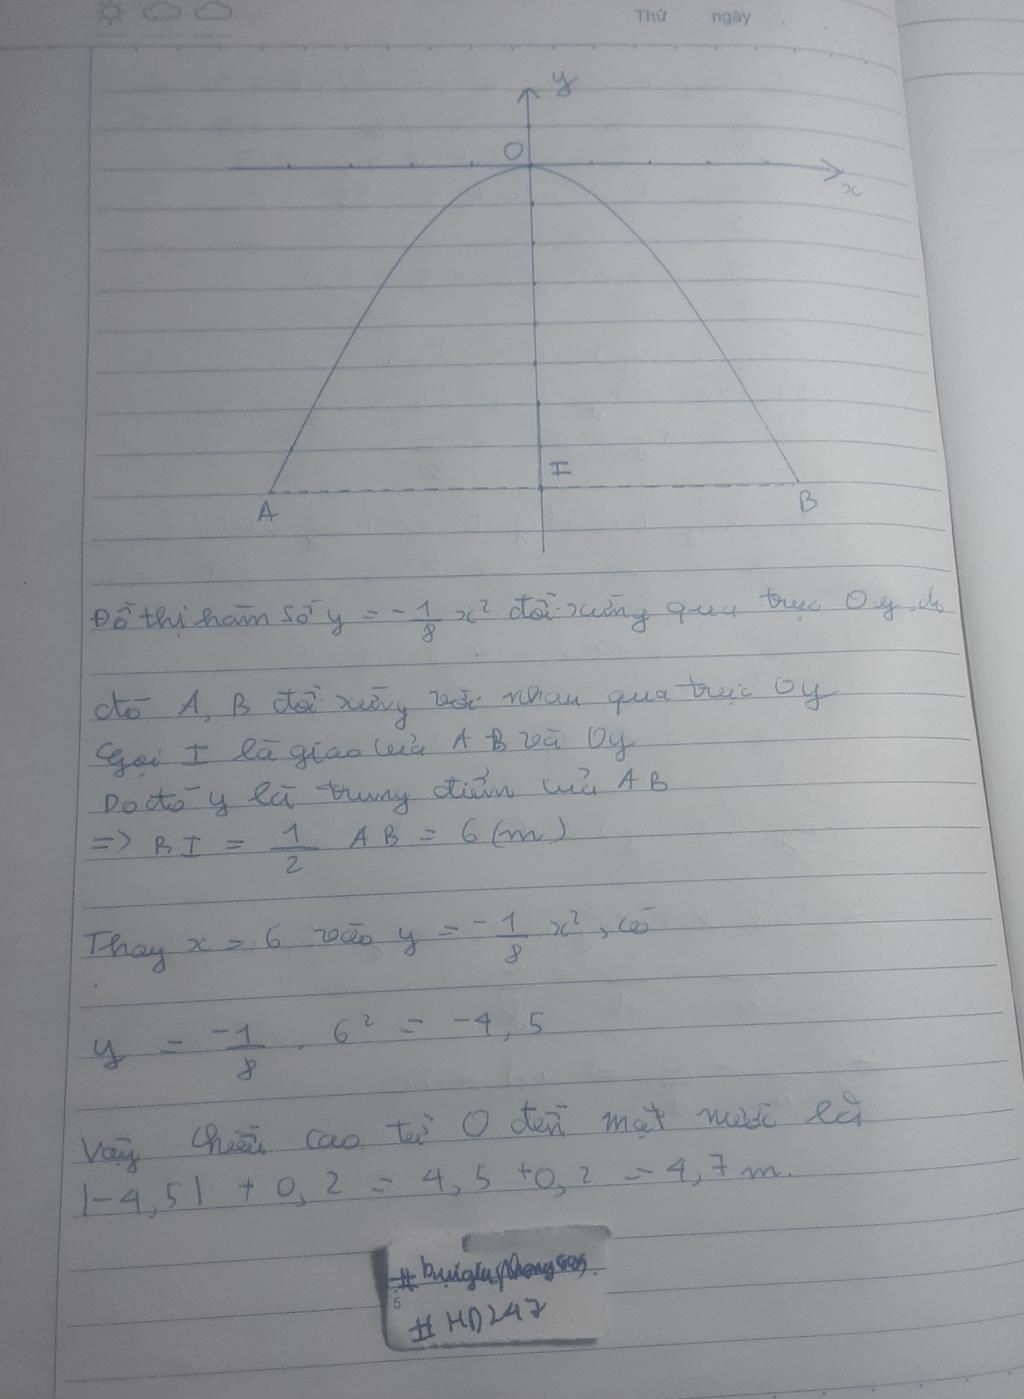 Thứ ngày
y
O
x
I
A B
Đồ thị hàm số y = -1/8 x² đối xứng qua trục Oy, do
đó A, B đối xứng với nhau qua trục Oy
Gọi I là giao của AB và Oy
Do đó y là trung điểm của AB
=> BI = 1/2 AB = 6 (m)
Thay x = 6 vào y = -1/8 x², có
y = -1/8 . 6² = -4,5
Vậy chiều cao từ O đến mặt nước là
|-4,5| + 0,2 = 4,5 + 0,2 = 4,7 m.
5
# HD247